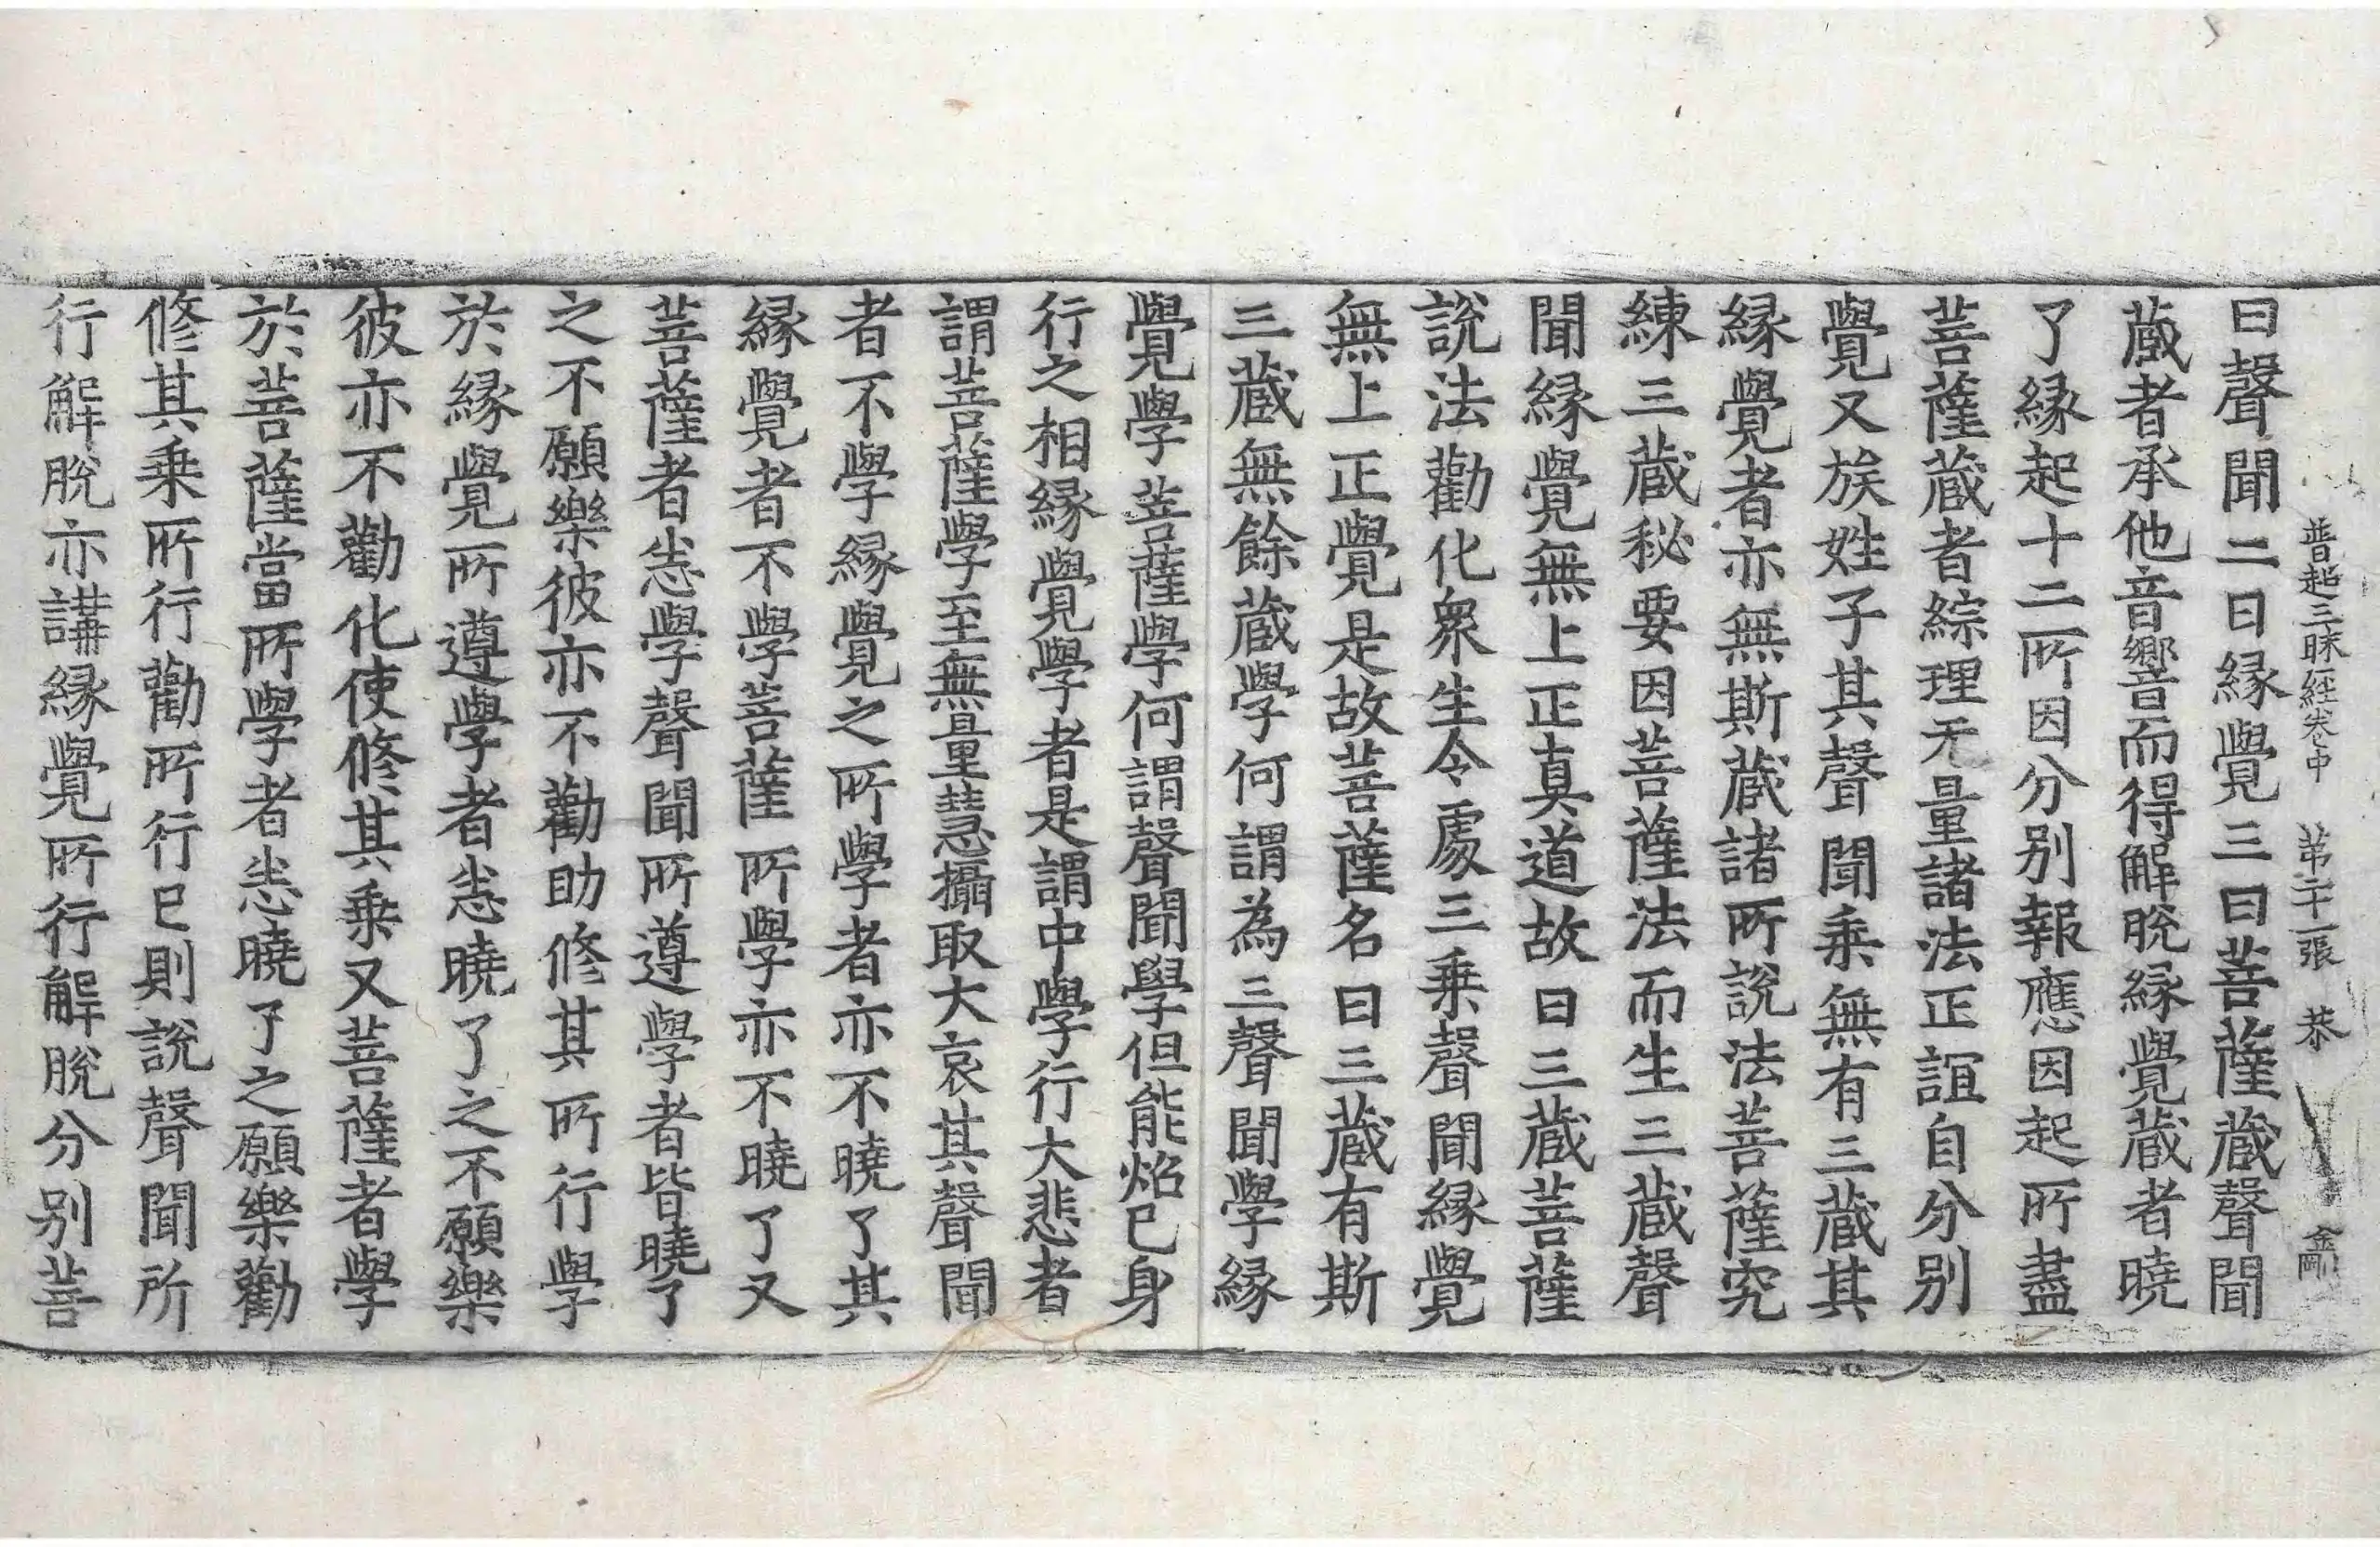 普超三昧經卷中 第二十一張 恭 金剛
曰聲聞二曰縁覺三曰菩薩蔵聲聞
蔵者承他音響而得解脫縁覺蔵者曉
了縁起十二所因分别報應因起所盡
菩薩蔵者綜理无量諸法正誼自分别
覺又族姓子其聲聞乘無有三蔵其
縁覺者亦無斯蔵諸所說法菩薩究
練三蔵秘要因菩薩法而生三蔵聲
聞縁覺無上正真道故曰三蔵菩薩
說法勸化衆生令處三乘聲聞縁覺
無上正覺是故菩薩名曰三蔵有斯
三蔵無餘蔵學何謂為三聲聞學縁
覺學菩薩學何謂聲聞學但能焰已身
行之相縁覺學者是謂中學行大悲者
謂菩薩學至無量慧攝取大哀其聲聞
者不學縁覺之所學者亦不曉了其
縁覺者不學菩薩所學亦不曉了又
菩薩者悉學聲聞所遵學者皆曉了
之不願樂彼亦不勸助修其所行學
於縁覺所遵學者悉曉了之不願樂
彼亦不勸化使修其乘又菩薩者學
於菩薩當所學者悉曉了之願樂勸
修其乘所行勸所行已則說聲聞所
行解脫亦講縁覺所行解脫分别菩